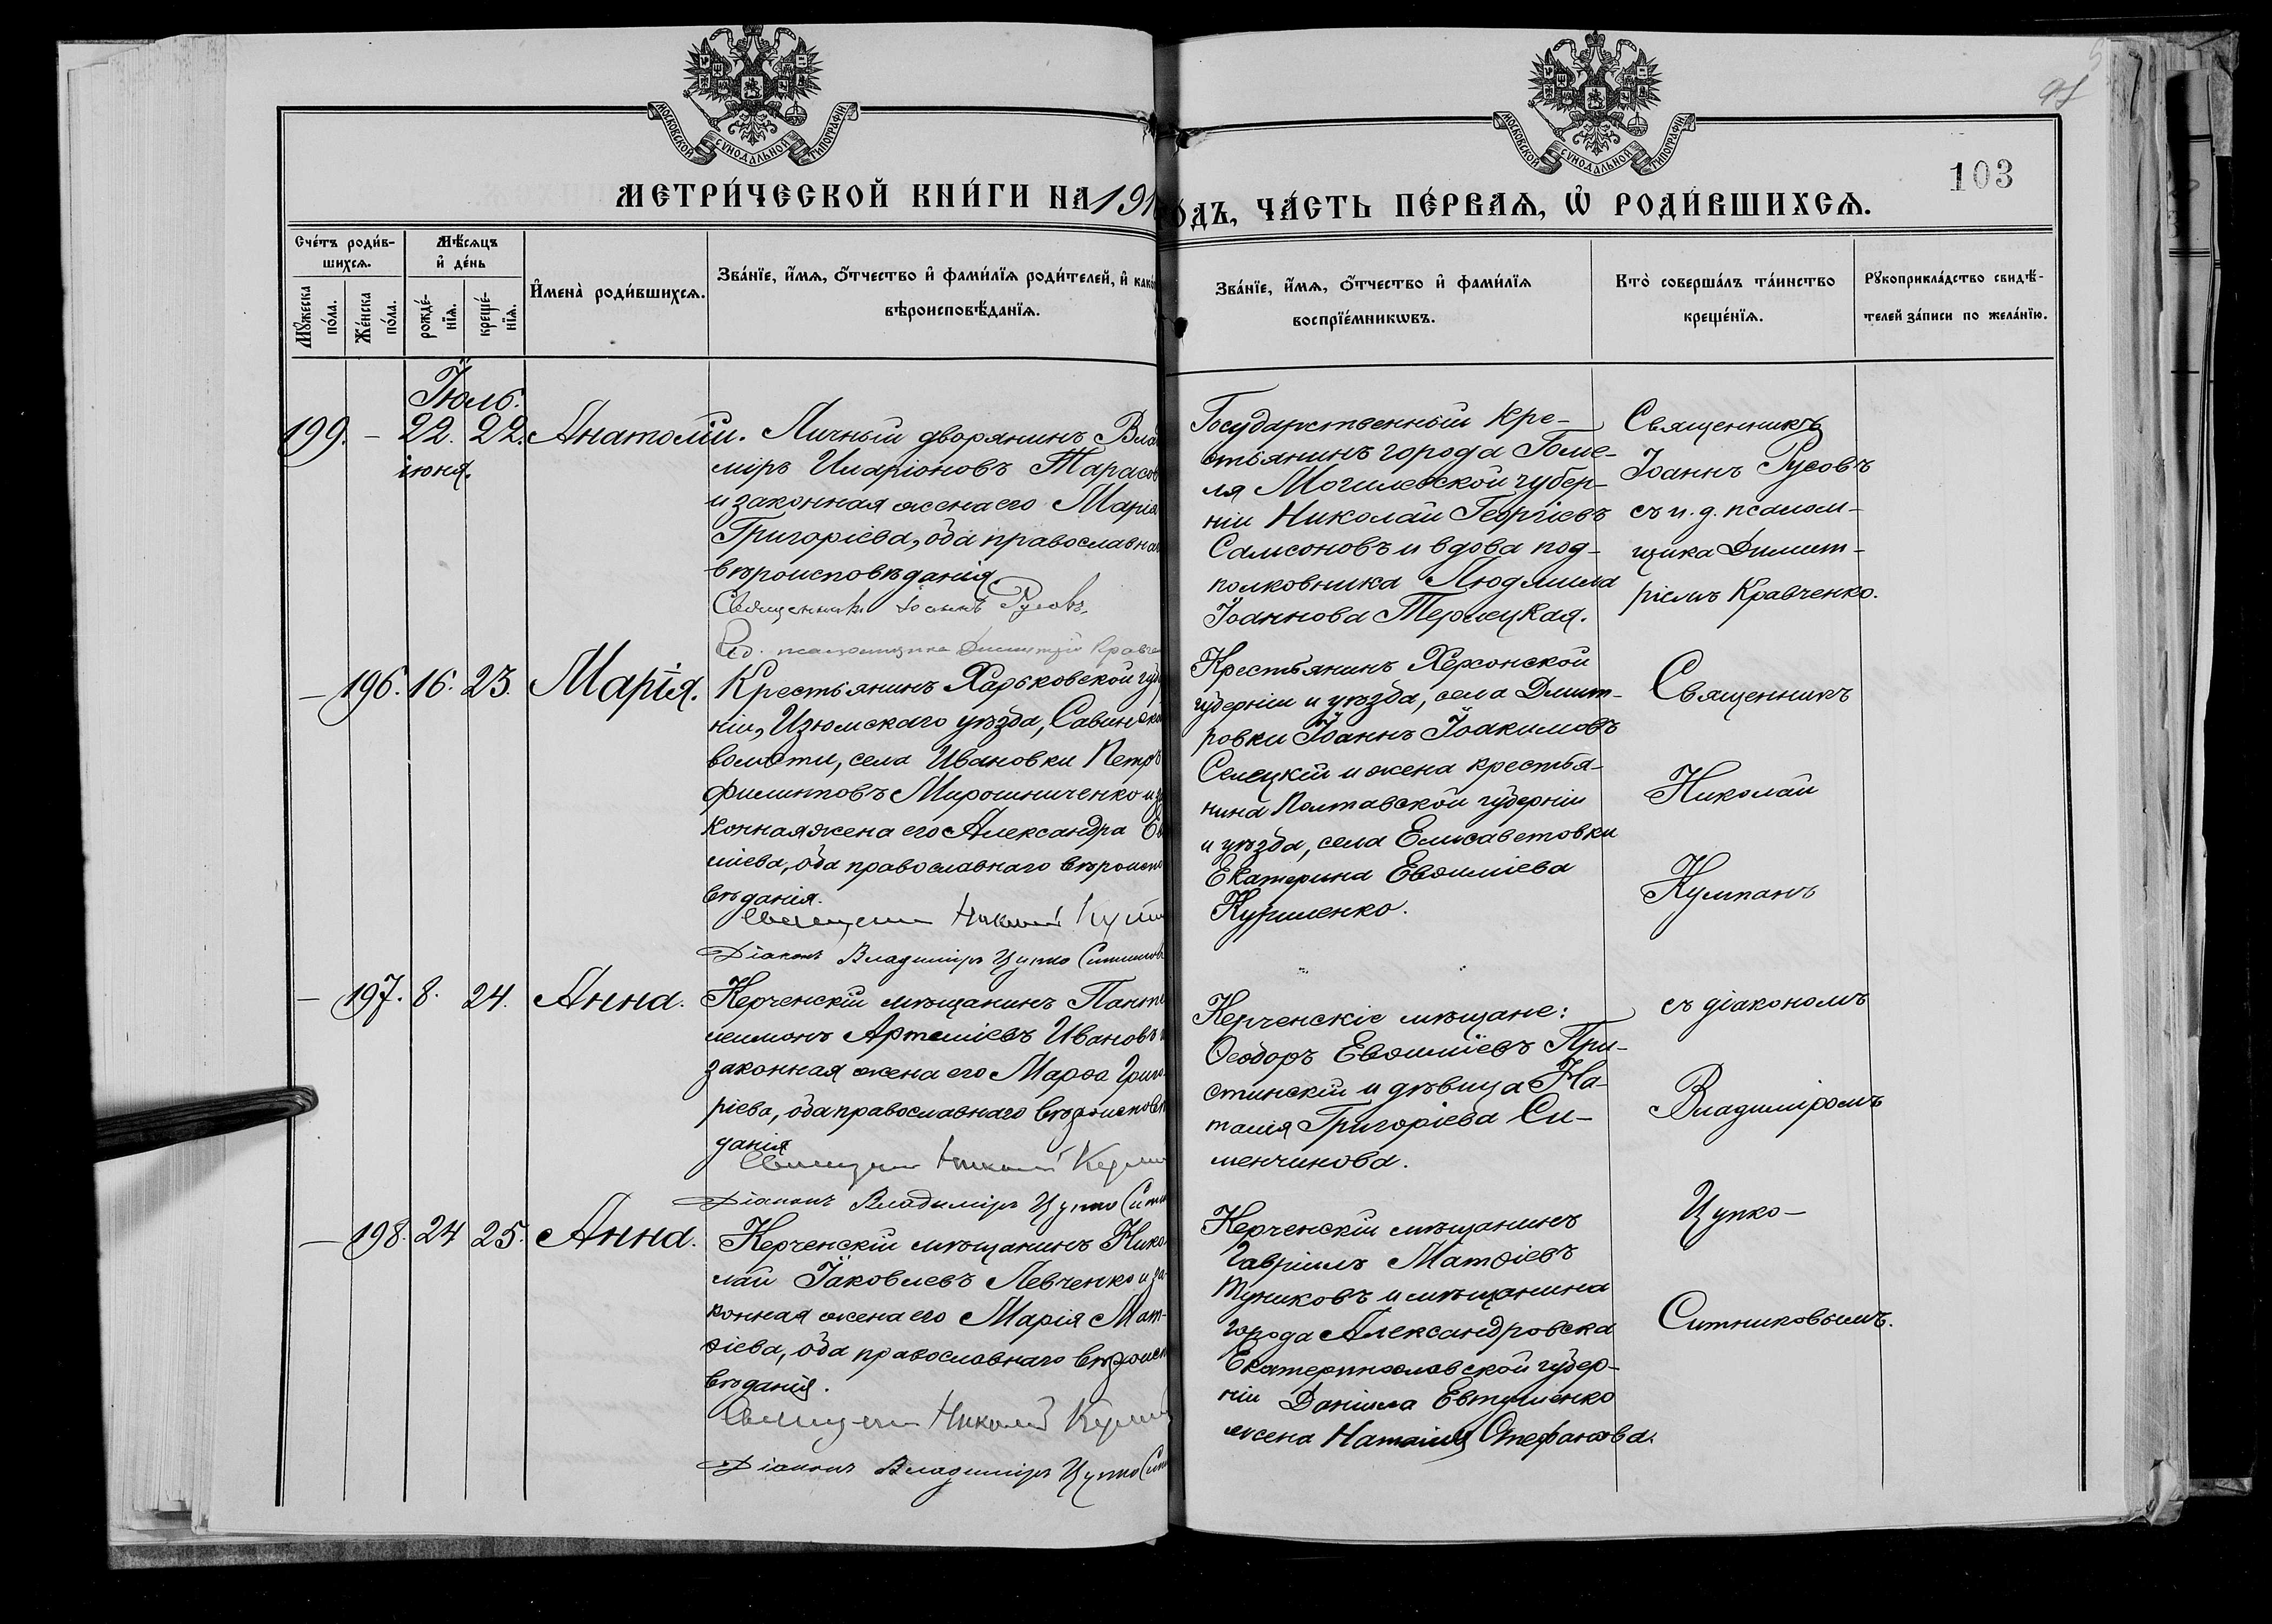 МОСКОВСКОЙ СѴНОДАЛЬНОЙ ТИПОГРАФІИ
МОСКОВСКОЙ СѴНОДАЛЬНОЙ ТИПОГРАФІИ
103
МЕТРИ́ЧЕСКОЙ КНИ́ГИ НА 191
О́ДЪ, ЧА́СТЬ ПЕ́РВАѦ, Ѡ҆ РОДИ́ВШИХСѦ.
Сче́тъ роди́в-
шихсѧ.
Мꙋ́жеска
по́ла.
Же́нска
по́ла.
Мѣ́сѧцъ
и҆ де́нь
рожде́-
нїѧ.
креще́-
нїѧ.
И҆мена̀ роди́вшихсѧ.
Зва́нїе, и҆́мѧ, ѻ҆́тчество и҆ фами́лїѧ роди́телей, и҆ како́
вѣроисповѣ́данїѧ.
Зва́нїе, и҆́мѧ, ѻ҆́тчество и҆ фами́лїѧ
воспрїе́мникѡвъ.
Кто̀ соверша́лъ та́инство
креще́нїѧ.
Рꙋкоприкла́дство свидѣ́-
телей за́писи по жела́нїю.
Іюль.
199. – 22. 22. Анатолій.
іюня.
Личный дворянинъ Влад
міръ Иларіоновъ Тарасов
и законная жена его Марія
Григоріева, оба православна
вѣроисповѣданія.
Священникъ Іоаннъ Русовъ.
И.д. псаломщика Димитрій Кравче
Государственный кре-
стьянинъ города Гоме-
ля Могилевской губер-
ніи Николай Георгіевъ
Самсоновъ и вдова под-
полковника Людмила
Іоаннова Терлецкая.
Священникъ
Іоаннъ Русовъ
съ и. д. псалом-
щика Димит-
ріемъ Кравченко.
– 196. 16. 23. Марія.
Крестьянинъ Харьковской губ
ніи, Изюмскаго уѣзда, Савинско
волости, села Ивановки Петръ
Филиповъ Мирошниченко и за
конная жена его Александра Ев
міева, оба православнаго вѣроиспо
вѣданія.
Священникъ Николай Кумп
Діаконъ Владиміръ Цупко Ситников
Крестьянинъ Херсонской
губерніи и уѣзда, села Дмит-
ровки Іоаннъ Іоакимовъ
Селецкій и жена крестья-
нина Полтавской губерніи
и уѣзда, села Елисаветовки
Екатерина Евѳиміева
Куриленко.
Священникъ
Николай
Кумпанъ
– 197. 8. 24. Анна.
Керченскій мѣщанинъ Панте
леимонъ Артеміевъ Ивановъ и
законная жена его Марѳа Григо-
ріева, оба православнаго вѣроисповѣ
данія.
Священникъ Николай Кумп
Діаконъ Владиміръ Цупко Ситн
Керченскіе мѣщане:
Ѳеодоръ Евѳиміевъ При-
стинскій и дѣвица На-
талія Григоріева Си-
менчинова.
съ діакономъ
Владиміромъ
Цупко-
Ситниковымъ.
– 198. 24 25. Анна.
Керченскій мѣщанинъ Нико-
лай Іаковлевъ Левченко и за-
конная жена его Марія Мат-
ѳіева, оба православнаго вѣроисп
вѣданія.
Священникъ Николай Кумп
Діаконъ Владиміръ Цупко Ситн
Керченскій мѣщанинъ
Гавріилъ Матѳіевъ
Туниковъ и мѣщанина
города Александровска
Екатеринославской губер-
ніи Даніила Евтушенко
жена Наталія Стефанова.